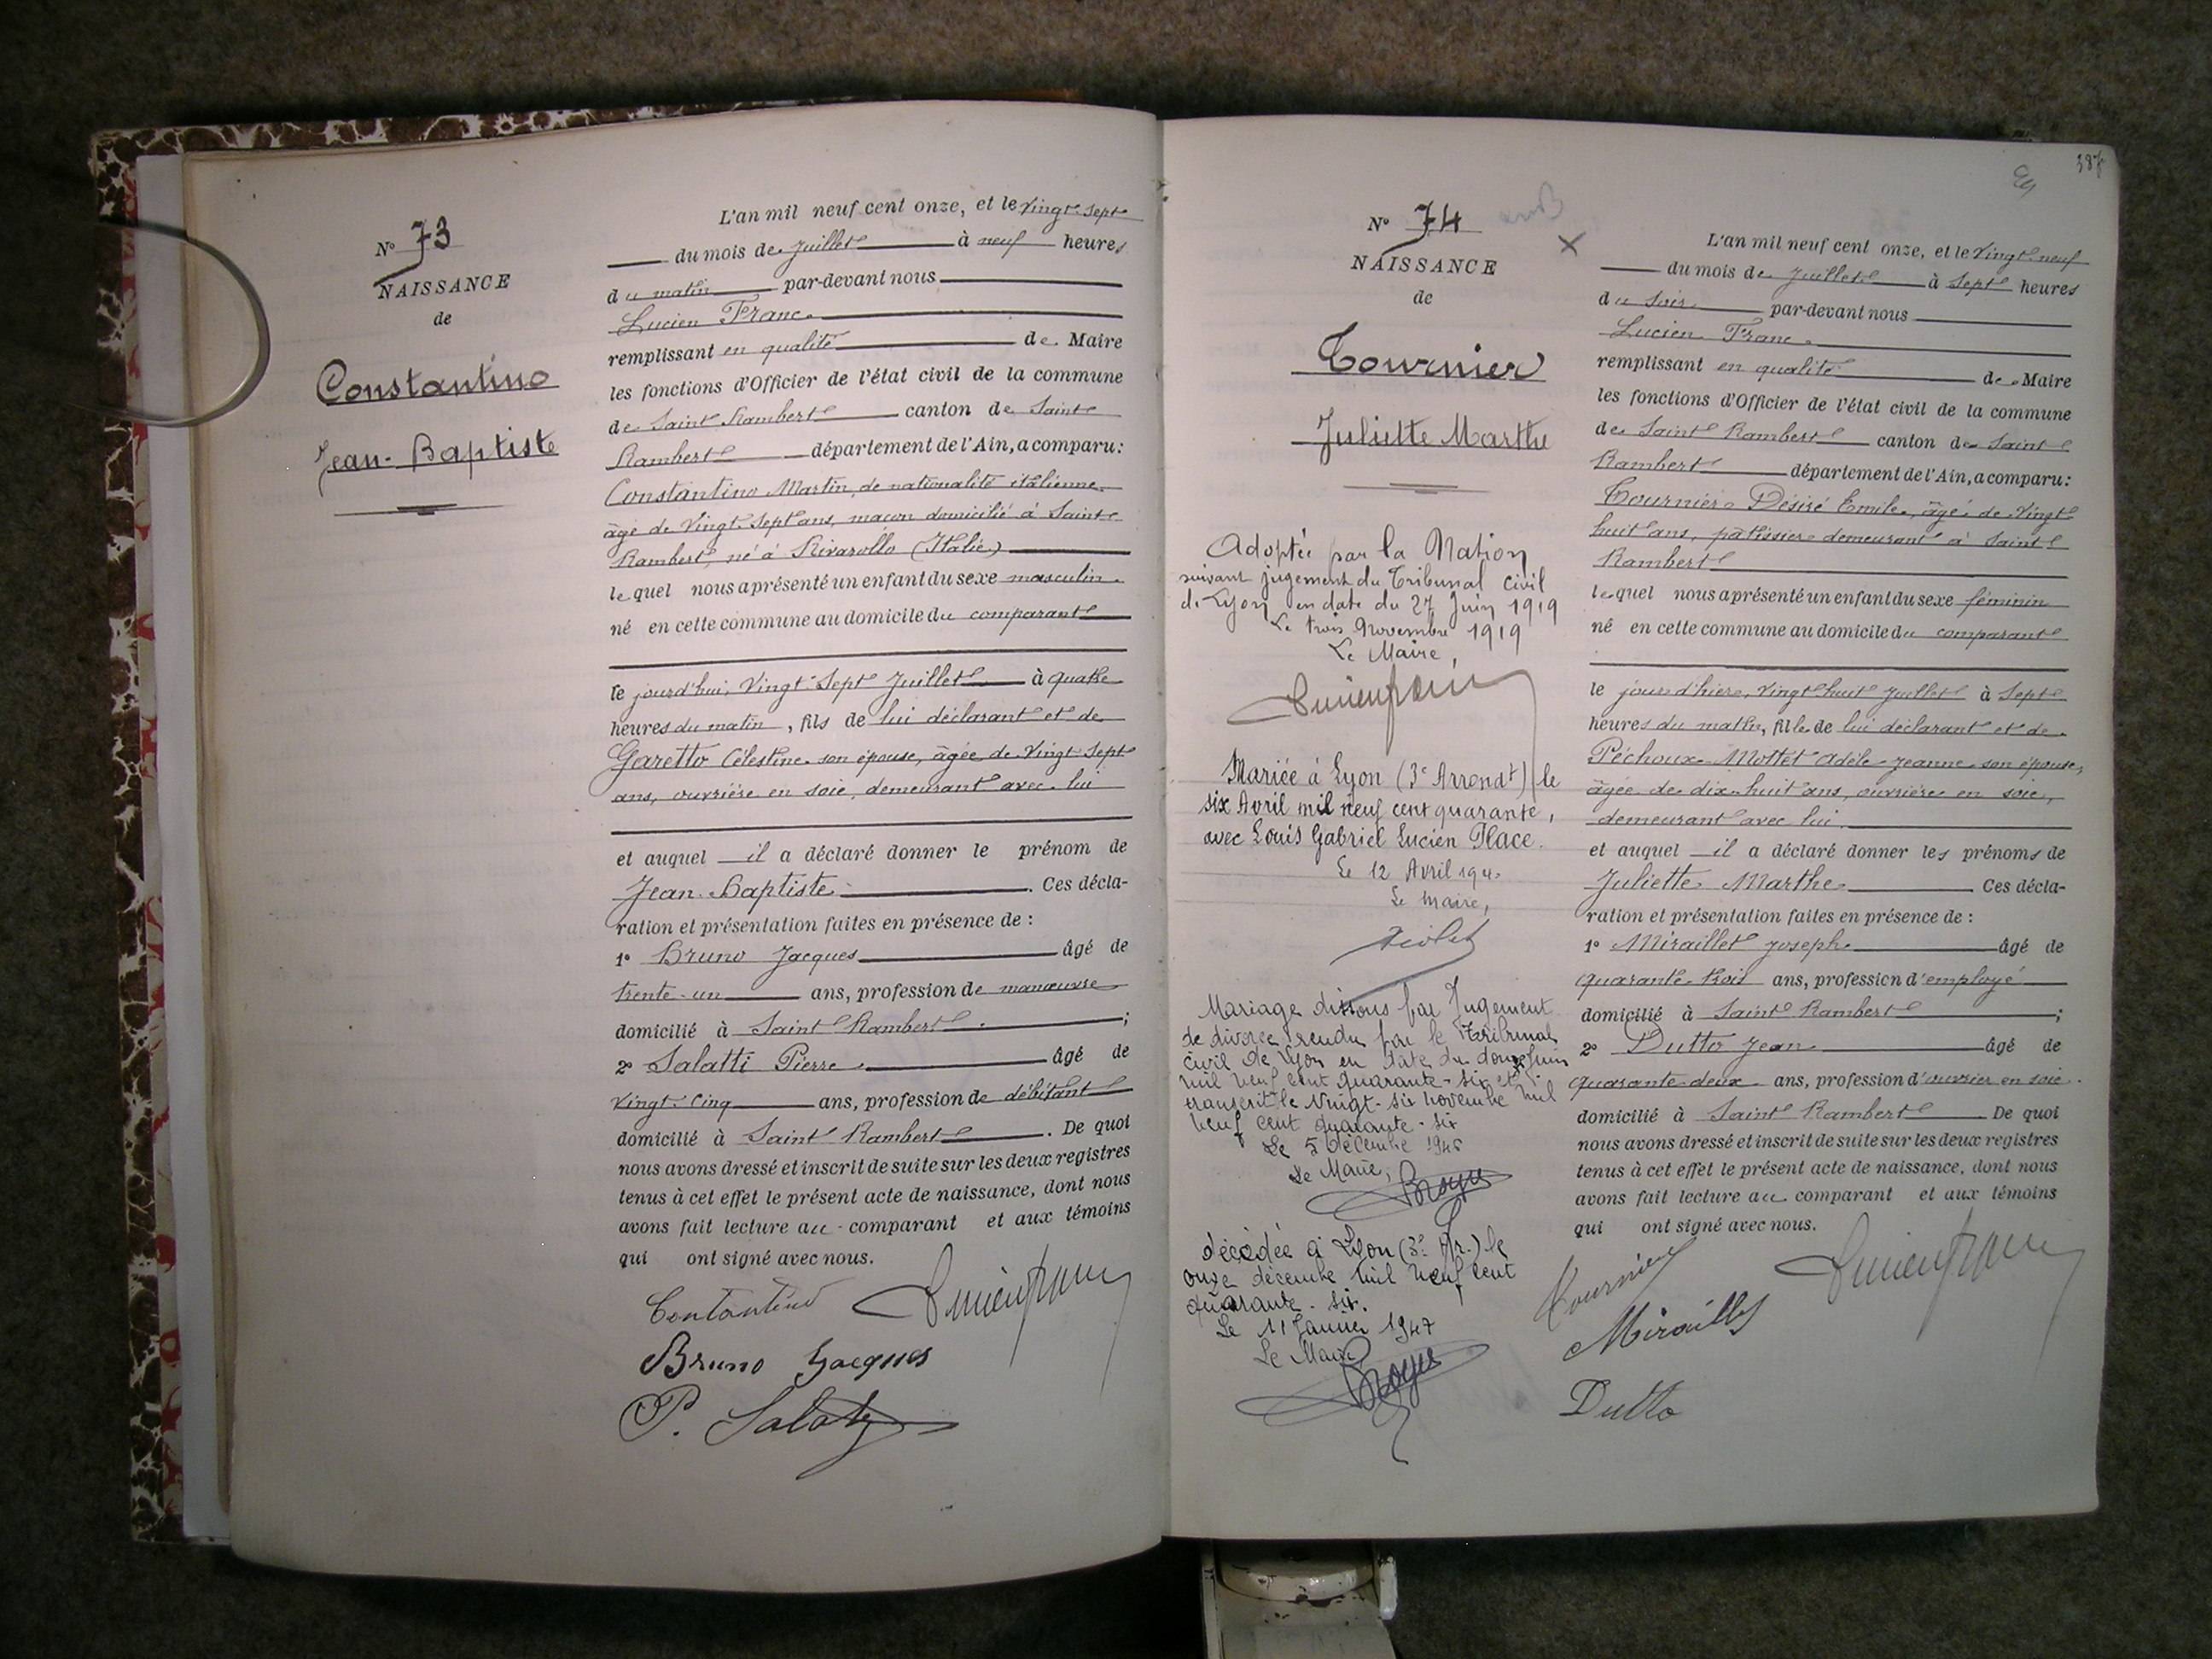 N° 73
NAISSANCE
de
Constantino
Jean-Baptiste
L'an mil neuf cent onze, et le Vingt-Sept
du mois de Juillet à neuf heures
du matin par-devant nous
Lucien Franc.
remplissant en qualité de Maire
les fonctions d'Officier de l'état civil de la commune
de Saint Rambert canton de Saint
Rambert département de l'Ain, a comparu:
Constantino Martin, de nationalité italienne
âgé de Vingt-Sept ans, maçon domicilié à Saint
Rambert, né à Rivarollo (Italie)
lequel nous a présenté un enfant du sexe masculin
né en cette commune au domicile du comparant
le jourd'hui, Vingt-Sept Juillet à quatre
heures du matin, fils de lui déclarant et de
Garetto Célestine son épouse, âgée de Vingt-Sept
ans, ouvrière en soie, demeurant avec lui
et auquel il a déclaré donner le prénom de
Jean-Baptiste. Ces décla-
ration et présentation faites en présence de :
1° Bruno Jacques âgé de
trente-un ans, profession de manœuvre
domicilié à Saint Rambert ;
2° Salatti Pierre âgé de
Vingt-Cinq ans, profession de débitant
domicilié à Saint Rambert. De quoi
nous avons dressé et inscrit de suite sur les deux registres
tenus à cet effet le présent acte de naissance, dont nous
avons fait lecture au comparant et aux témoins
qui ont signé avec nous.
Lucien Franc
Bruno Jacques
387
N° 74
NAISSANCE
de
Tournier
Juliette Marthe
Adoptée par la Nation
suivant jugement du Tribunal Civil
de Lyon en date du 27 Juin 1919
Le trois Novembre 1919
Le Maire,
Lucien Franc
Mariée à Lyon (3e Arrondt) le
six Avril mil neuf cent quarante,
avec Louis Gabriel Lucien Place.
Le 12 Avril 1940
Le Maire,
Mariage dissous par Jugement
de divorce rendu par le Tribunal
Civil de Lyon en date du douze Juin
mil neuf cent quarante-six et
transcrit le Vingt-six novembre mil
neuf cent quarante-six
Le 5 Décembre 1946
Le Maire,
décédée à Lyon (3e Ar.) le
onze décembre mil neuf cent
quarante-six.
Le 11 Janvier 1947
Le Maire
L'an mil neuf cent onze, et le Vingt-neuf
du mois de Juillet à Sept heures
du soir par-devant nous
Lucien Franc.
remplissant en qualité de Maire
les fonctions d'Officier de l'état civil de la commune
de Saint Rambert canton de Saint
Rambert département de l'Ain, a comparu:
Tournier Désiré Emile, âgé de Vingt
huit ans, pâtissier demeurant à Saint
Rambert
lequel nous a présenté un enfant du sexe féminin
né en cette commune au domicile du comparant
le jour d'hier, Vingt huit Juillet à Sept
heures du matin, fille de lui déclarant et de
Péchoux-Mottet Adèle Jeanne son épouse,
âgée de dix-huit ans, ouvrière en soie,
demeurant avec lui.
et auquel il a déclaré donner les prénoms de
Juliette Marthe Ces décla-
ration et présentation faites en présence de :
1° Miraillet Joseph âgé de
quarante-trois ans, profession d'employé
domicilié à Saint Rambert ;
2° Dutto Jean âgé de
quarante-deux ans, profession d'ouvrier en soie.
domicilié à Saint Rambert De quoi
nous avons dressé et inscrit de suite sur les deux registres
tenus à cet effet le présent acte de naissance, dont nous
avons fait lecture au comparant et aux témoins
qui ont signé avec nous.
Tournier
Lucien Franc
Dutto